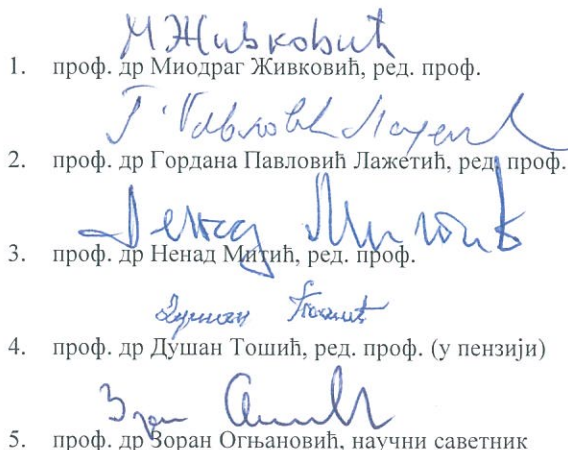 М Живковић
1. проф. др Миодраг Живковић, ред. проф.
Г. Павловић Лажетић
2. проф. др Гордана Павловић Лажетић, ред. проф.
Ненад Митић
3. проф. др Ненад Митић, ред. проф.
Душан Тошић
4. проф. др Душан Тошић, ред. проф. (у пензији)
5. проф. др Зоран Огњановић, научни саветник